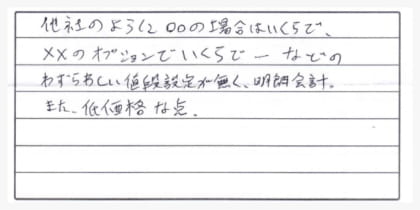 他社のように〇〇の場合はいくらで、
××のオプションでいくらで ー などの
わずらわしい値段設定が無く、明朗会計。
また、低価格な点。